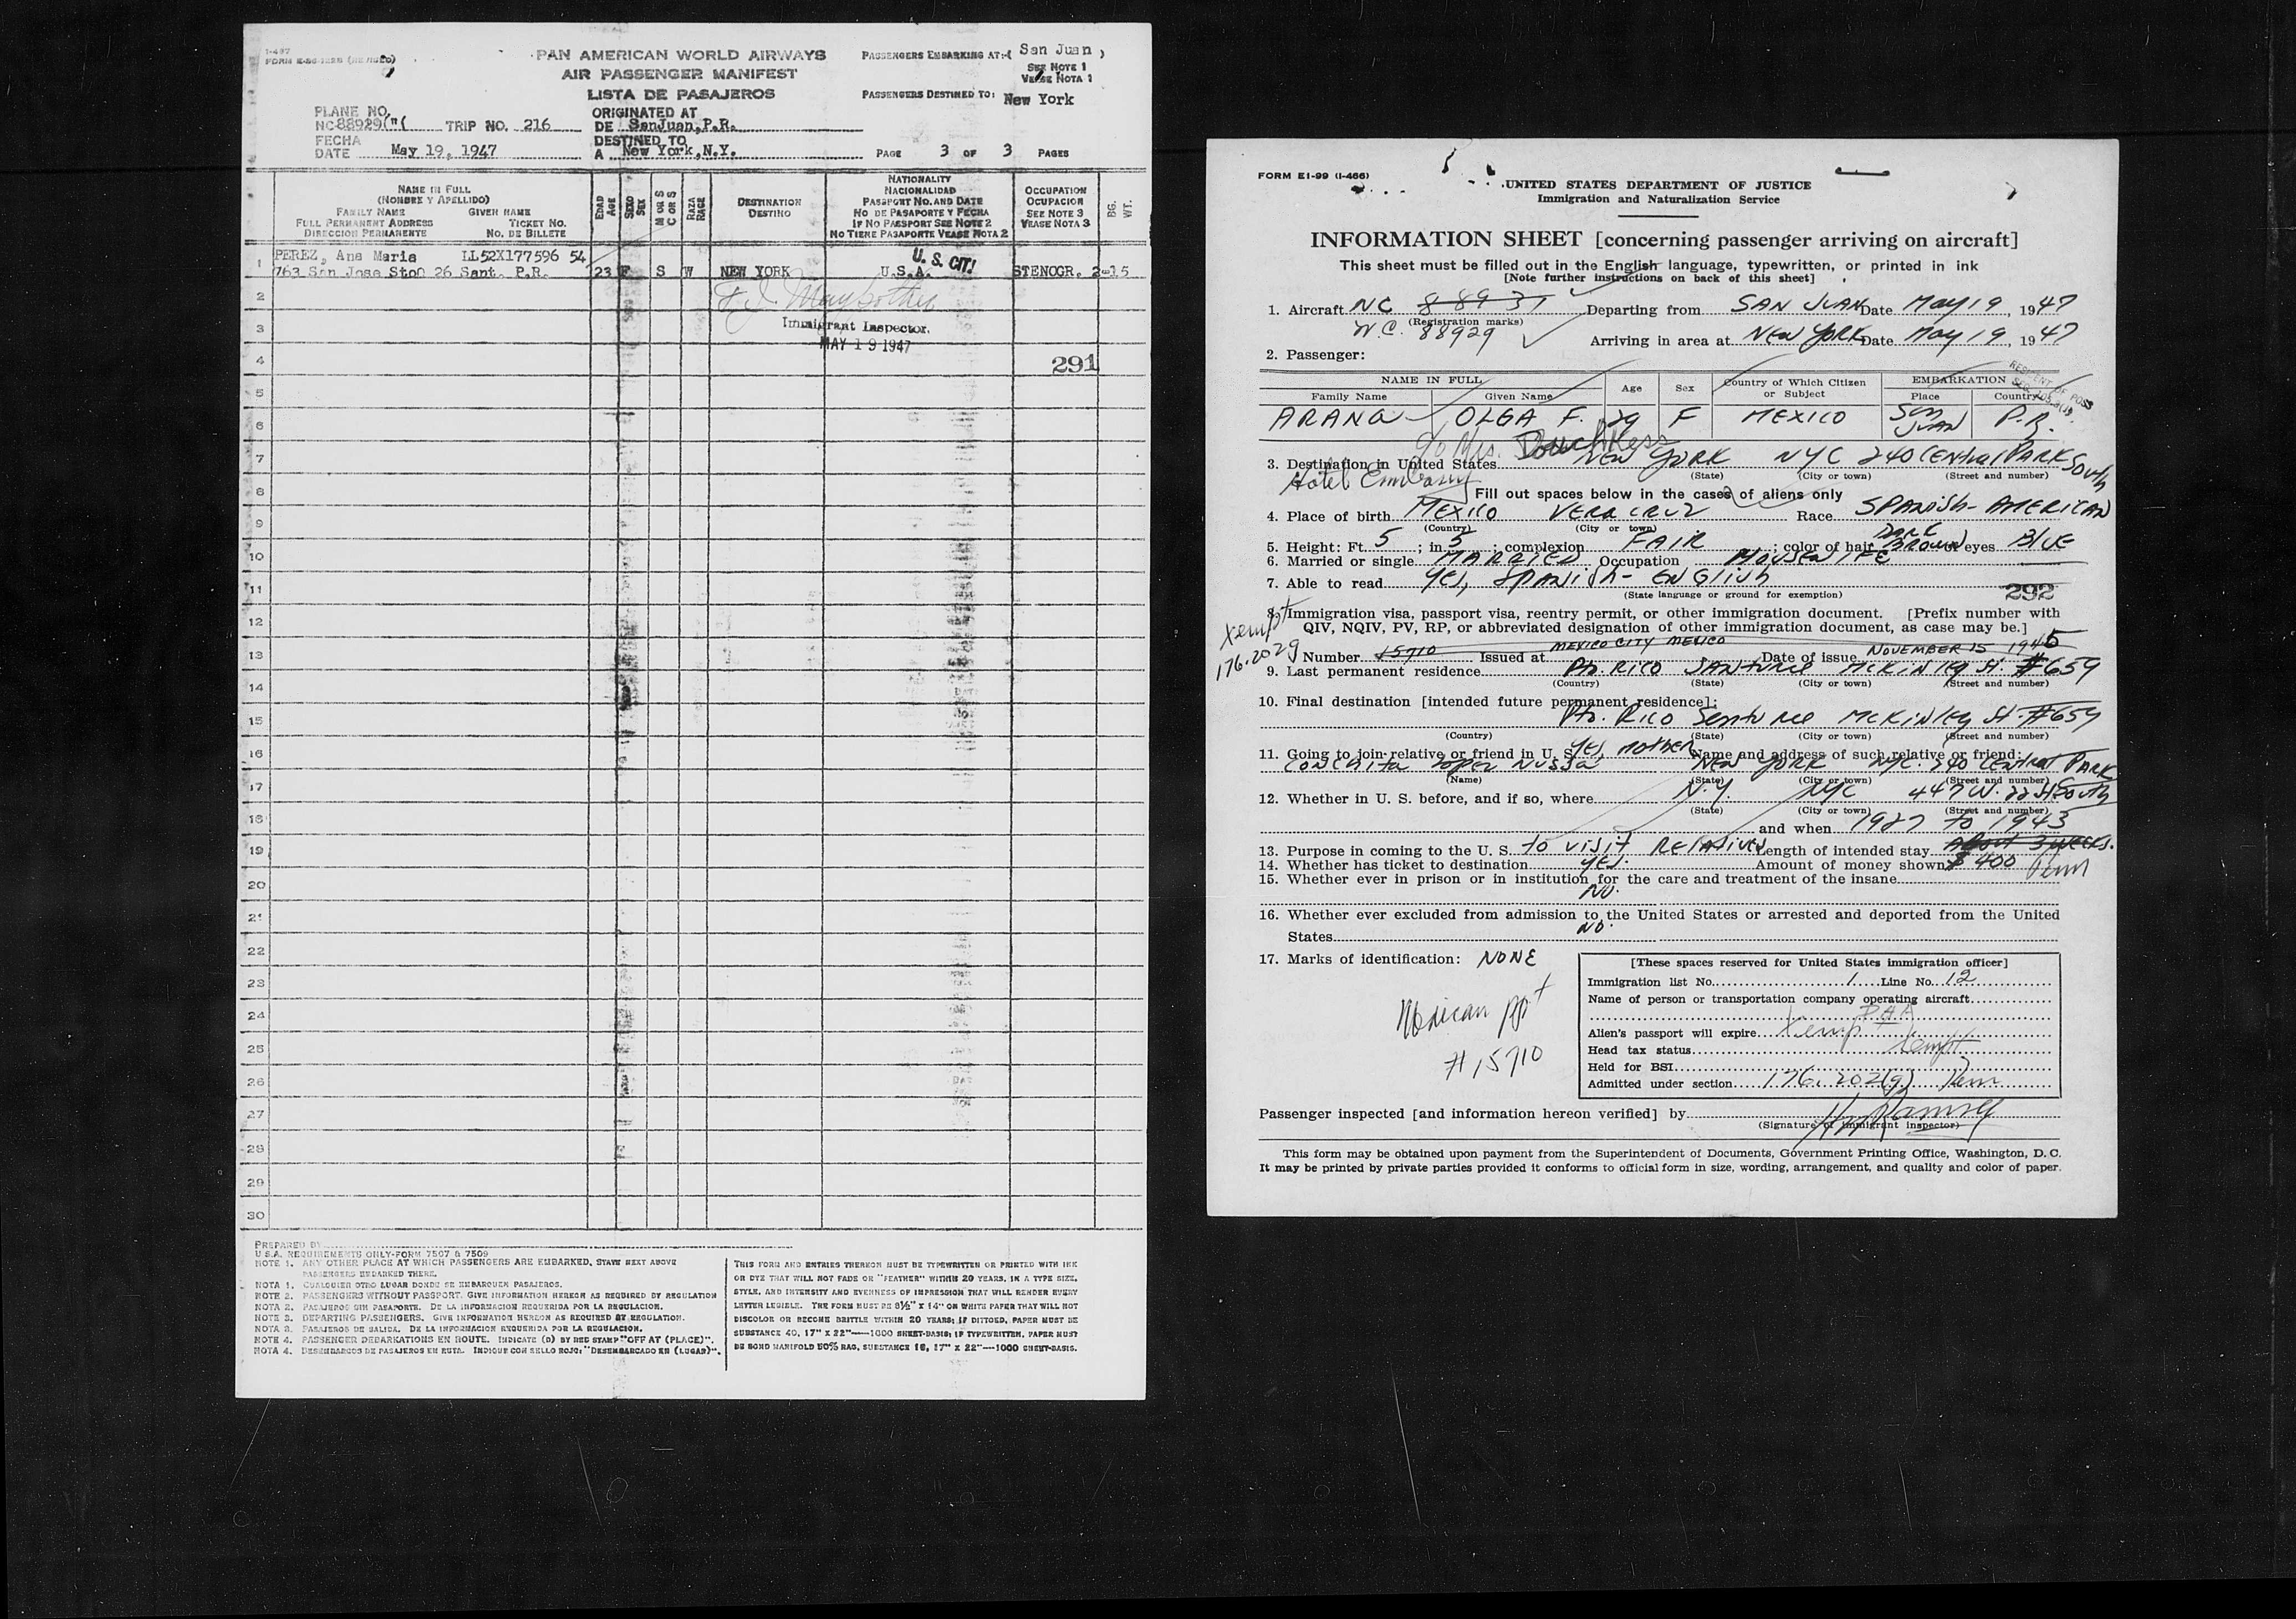 I-467
PAN AMERICAN WORLD AIRWAYS
AIR PASSENGER MANIFEST
LISTA DE PASAJEROS
PASSENGERS EMBARKING AT:( San Juan )
SEE NOTE 1
VEASE NOTA 1
PASSENGERS DESTINED TO: New York
PLANE NO.
NC 88929 TRIP NO. 216
FECHA
DATE May 19, 1947
ORIGINATED AT
DE SanJuan,P.R.
DESTINED TO
A New York,N.Y.
PAGE 3 OF 3 PAGES
NAME IN FULL
(NOMBRE Y APELLIDO)
FAMILY NAME GIVEN NAME
FULL PERMANENT ADDRESS TICKET NO.
DIRECCION PERMANENTE NO. DE BILLETE
EDAD AGE
SEXO SEX
M OR S C O S
RAZA RACE
DESTINATION
DESTINO
NATIONALITY
NACIONALIDAD
PASSPORT NO. AND DATE
NO DE PASAPORTE Y FECHA
IF NO PASSPORT SEE NOTE 2
NO TIENE PASAPORTE VEASE NOTA 2
OCCUPATION
OCUPACION
SEE NOTE 3
VEASE NOTA 3
BG. WT.
1 PEREZ, Ana Maria LL52X177596 54 U. S. CIT!
763 San Jose Stop 26 Sant. P.R. 23 F S W NEW YORK U.S.A. STENOGR. 2-15
2
3 Immigrant Inspector.
MAY 19 1947
4 291
5
6
7
8
9
10
11
12
13
14
15
16
17
18
19
20
21
22
23
24
25
26
27
28
29
30
PREPARED BY
U.S.A. REQUIREMENTS ONLY-FORM 7507 & 7509
NOTE 1. ANY OTHER PLACE AT WHICH PASSENGERS ARE EMBARKED, STATE NEXT ABOVE
PASSENGERS EMBARKED THERE.
NOTA 1. CUALQUIER OTRO LUGAR DONDE SE EMBARQUEN PASAJEROS.
NOTE 2. PASSENGERS WITHOUT PASSPORT. GIVE INFORMATION HEREON AS REQUIRED BY REGULATION
NOTA 2. PASAJEROS SIN PASAPORTE. DE LA INFORMACION REQUERIDA POR LA REGULACION.
NOTE 3. DEPARTING PASSENGERS. GIVE INFORMATION HEREON AS REQUIRED BY REGULATION.
NOTA 3. PASAJEROS DE SALIDA. DE LA INFORMACION REQUERIDA POR LA REGULACION.
NOTE 4. PASSENGER DEBARKATIONS EN ROUTE. INDICATE (D) BY RED STAMP "OFF AT (PLACE)".
NOTA 4. DESEMBARCOS DE PASAJEROS EN RUTA. INDIQUE CON SELLO ROJO: "DESEMBARCADO EN (LUGAR)".
THIS FORM AND ENTRIES THEREON MUST BE TYPEWRITTEN OR PRINTED WITH INK
OR DYE THAT WILL NOT FADE OR "FEATHER" WITHIN 20 YEARS, IN A TYPE SIZE,
STYLE, AND INTENSITY AND EVENNESS OF IMPRESSION THAT WILL RENDER EVERY
LETTER LEGIBLE. THE FORM MUST BE 8½" X 14" ON WHITE PAPER THAT WILL NOT
DISCOLOR OR BECOME BRITTLE WITHIN 20 YEARS; IF DITTOED, PAPER MUST BE
SUBSTANCE 40, 17" X 22"—1000 SHEET-BASIS; IF TYPEWRITTEN, PAPER MUST
BE BOND MANIFOLD 50% RAG, SUBSTANCE 16, 17" X 22"—1000 SHEET-BASIS.
FORM EI-99 (I-466)
UNITED STATES DEPARTMENT OF JUSTICE
Immigration and Naturalization Service
INFORMATION SHEET [concerning passenger arriving on aircraft]
This sheet must be filled out in the English language, typewritten, or printed in ink
[Note further instructions on back of this sheet]
1. Aircraft NC 88931 Departing from SAN JUAN Date May 19, 1947
(Registration marks)
N.C. 88929
Arriving in area at NEW YORK Date May 19, 1947
2. Passenger:
NAME IN FULL Age Sex Country of Which Citizen or Subject EMBARKATION
Family Name Given Name Place Country
ARANA OLGA F. 29 F MEXICO SAN JUAN P.R.
c/o Mrs.
3. Destination in United States NEW YORK NYC 240 CENTRAL PARK SOUTH
(State) (City or town) (Street and number)
Hotel Embassy
Fill out spaces below in the cases of aliens only
4. Place of birth MEXICO VERA CRUZ Race SPANISH-AMERICAN
(Country) (City or town)
5. Height: Ft. 5; in 5; complexion FAIR; color of hair DARK BROWN eyes BLUE
6. Married or single MARRIED Occupation HOUSEWIFE
7. Able to read YES, SPANISH-ENGLISH
(State language or ground for exemption)
292
8. Immigration visa, passport visa, reentry permit, or other immigration document. [Prefix number with
QIV, NQIV, PV, RP, or abbreviated designation of other immigration document, as case may be.]
Xempt
176.202g
Number 15710 Issued at MEXICO CITY MEXICO Date of issue NOVEMBER 15 1945
9. Last permanent residence Pto. RICO SANTURCE McKINLEY St. #659
(Country) (State) (City or town) (Street and number)
10. Final destination [intended future permanent residence]:
Pto. RICO Santurce McKINLEY St. #659
(Country) (State) (City or town) (Street and number)
11. Going to join relative or friend in U. S. YES, MOTHER Name and address of such relative or friend:
CONCHITA LOPEZ NUSSA NEW YORK NYC. 240 CENTRAL PARK SOUTH
(Name) (State) (City or town) (Street and number)
12. Whether in U. S. before, and if so, where N.Y. NYC 447 W. 22 St
(State) (City or town) (Street and number)
and when 1927 to 1943
13. Purpose in coming to the U. S. to visit RELATIVES Length of intended stay About 3 WEEKS. Perm
14. Whether has ticket to destination YES. Amount of money shown $400
15. Whether ever in prison or in institution for the care and treatment of the insane
NO.
16. Whether ever excluded from admission to the United States or arrested and deported from the United
States NO.
17. Marks of identification: NONE
Mexican ppt
#15710
[These spaces reserved for United States immigration officer]
Immigration list No. 1 Line No. 12
Name of person or transportation company operating aircraft
PAA
Alien's passport will expire Xempt
Head tax status Xempt
Held for BSI
Admitted under section 176.202(g) Perm
Passenger inspected [and information hereon verified] by
(Signature of immigrant inspector)
This form may be obtained upon payment from the Superintendent of Documents, Government Printing Office, Washington, D. C.
It may be printed by private parties provided it conforms to official form in size, wording, arrangement, and quality and color of paper.